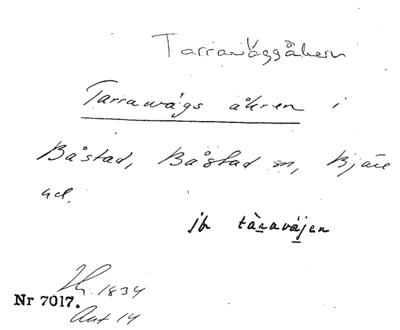 Tarraväggåkern
Tarrawägs åkren i
Båstad, Båstad sn, Bjäre
hd.
jb tàravä́jen
1834
Nr 7017.
Akt 14